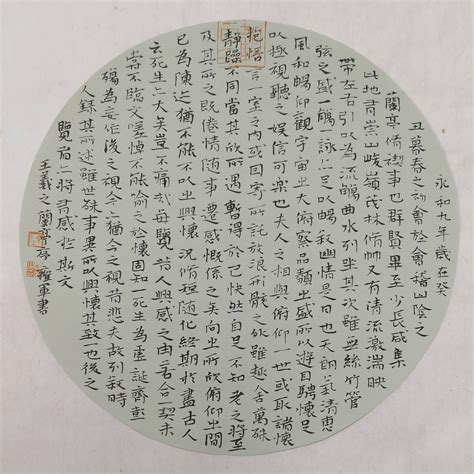 永和九年歲在癸
丑暮春之初會於會稽山陰之
蘭亭脩禊事也群賢畢至少長咸集
此地有崇山峻嶺茂林脩竹又有清流激湍映
帶左右引以為流觴曲水列坐其次雖無絲竹管
弦之盛一觴一詠亦足以暢叙幽情是日也天朗氣清惠
風和暢仰觀宇宙之大俯察品類之盛所以遊目騁懷足
以極視聽之娛信可樂也夫人之相與俯仰一世或取諸懷
抱悟言一室之內或因寄所託放浪形骸之外雖趣舍萬殊
靜躁不同當其欣於所遇暫得於己快然自足不知老之將至
及其所之既倦情隨事遷感慨係之矣向之所欣俯仰之間
已為陳迹猶不能不以之興懷況脩短隨化終期於盡古人
云死生亦大矣豈不痛哉每覽昔人興感之由若合一契未
嘗不臨文嗟悼不能喻之於懷固知一死生為虛誕齊彭
殤為妄作後之視今亦猶今之視昔悲夫故列叙時
人錄其所述雖世殊事異所以興懷其致一也後之
覽者亦將有感於斯文
王羲之蘭亭序 軍書